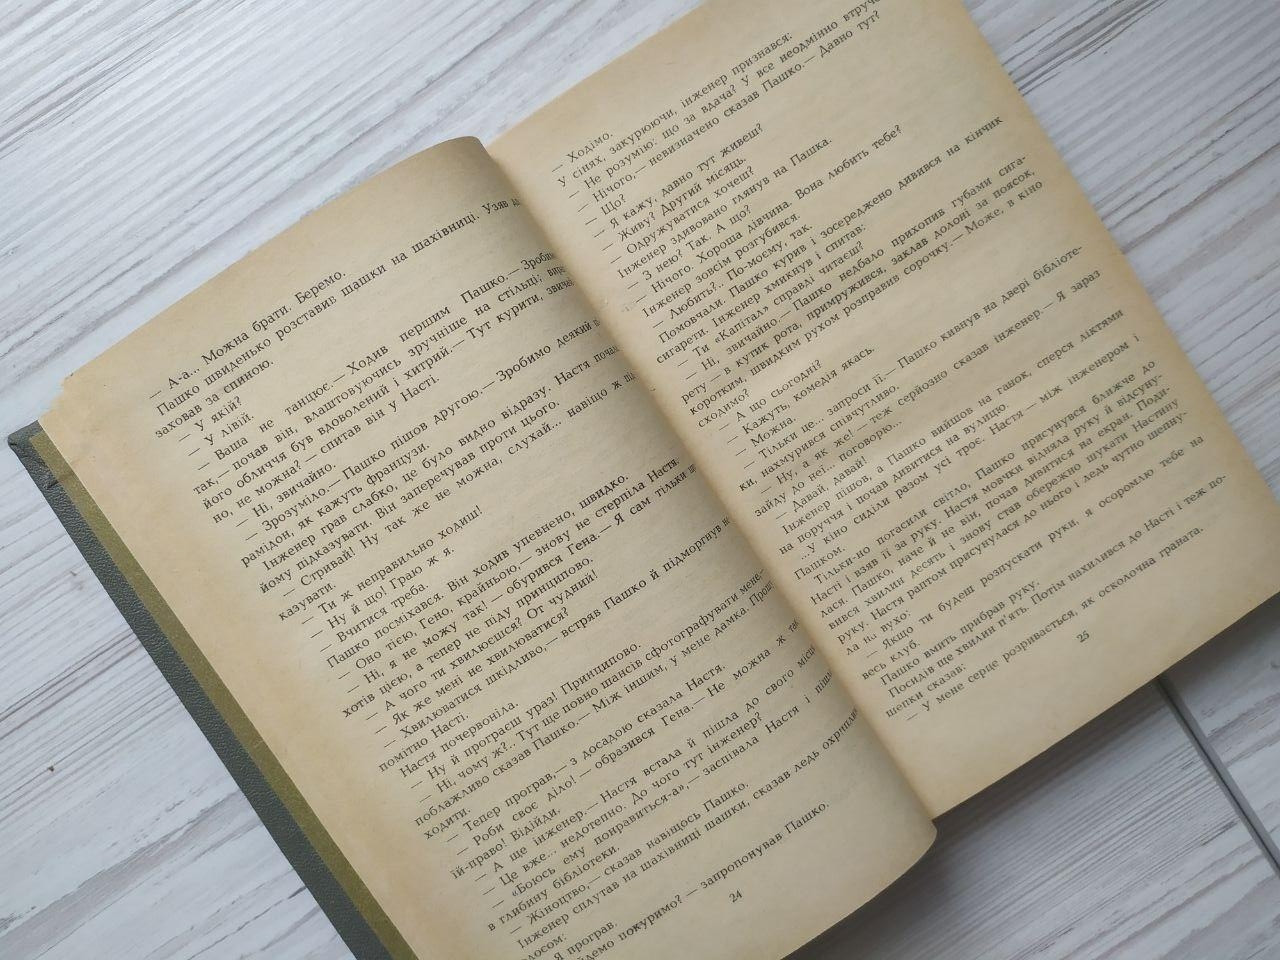 — А-а... Можна брати. Беремо.
Пашко швиденько розставив шашки на шахівниці. Узяв
заховав за спиною.
— У якій?
— У лівій.
— Ваша не танцює.— Ходив першим Пашко.— Зробимо
так, — почав він, влаштовуючись зручніше на стільці;
його обличчя був вдоволений і хитрий.— Тут курити, звичай-
но, не можна? — спитав він у Насті.
— Ні, звичайно.
— Зрозуміло.— Пашко пішов другою.— Зробимо деякий
рамідон, як кажуть французи.
Інженер грав слабко, це було видно відразу. Настя почала
йому підказувати. Він заперечував проти цього.
— Стривай! Ну так же не можна, слухай... навіщо ж
казувати.
— Ти ж неправильно ходиш!
— Ну й що! Граю ж я.
— Вчитися треба.
Пашко посміхався. Він ходив упевнено, швидко.
— Оно тією, Гено, крайньою,— знову не стерпіла Настя.
— Ні, я не можу так! — обурився Гена.— Я сам тільки
хотів цією, а тепер не піду принципово.
— А чого ти хвилюєшся? От чудний!
— Як же мені не хвилюватися?
— Хвилюватися шкідливо,— встряв Пашко й підморгнув
помітно Насті.
Настя почервоніла.
— Ну й програєш ураз! Принципово.
— Ні, чому ж?.. Тут ще повно шансів сфотографувати мене,—
поблажливо сказав Пашко.— Між іншим, у мене дамка. Прошу
ходити.
— Тепер програв,— з досадою сказала Настя.
— Роби своє діло! — образився Гена.— Не можна ж так,
їй-право! Відійди.
— А ще інженер.— Настя встала й пішла до свого місця.
— Це вже... недотепно. До чого тут інженер?
— «Боюсь ему понравиться-а»,— заспівала Настя і пішла
в глибину бібліотеки.
— Жіноцтво,— сказав навіщось Пашко.
Інженер сплутав на шахівниці шашки, сказав ледь охриплим
голосом:
— Я програв.
— Йдемо покуримо? — запропонував Пашко.
24
— Ходімо.
У сінях, закурюючи, інженер признався:
— Не розумію: що за вдача? У все неодмінно
— Нічого,— невизначено сказав Пашко.— Давно тут?
— Що?
— Я кажу, давно тут живеш?
— Живу? Другий місяць.
— Одружуватися хочеш?
Інженер здивовано глянув на Пашка.
— З нею? Так. А що?
— Нічого. Хороша дівчина. Вона любить тебе?
Інженер зовсім розгубився.
— Любить?.. По-моєму, так.
Помовчали. Пашко курив і зосереджено дивився на кінчик
сигарети. Інженер хмикнув і спитав:
— Ти «Капітал» справді читаєш?
— Ні, звичайно.— Пашко недбало прихопив губами сига-
рету — в кутик рота, примружився, заклав долоні за поясок,
коротким, швидким рухом розправив сорочку.— Може, в кіно
сходимо?
— А що сьогодні?
— Кажуть, комедія якась.
— Можна.
— Тільки це... запроси її.— Пашко кивнув на двері бібліоте-
ки, нахмурився співчутливо.
— Ну, а як же! — теж серйозно сказав інженер.— Я зараз
зайду до неї... поговорю...
— Давай, давай!
Інженер пішов, а Пашко вийшов на ганок, сперся ліктями
на поруччя і почав дивитися на вулицю.
...У кіно сиділи разом усі троє. Настя — між інженером і
Пашком.
Тільки-но погасили світло, Пашко присунувся ближче до
Насті і взяв її за руку. Настя мовчки відняла руку й відсуну-
лася. Пашко, наче й не він, почав дивитися на екран. Поди-
вився хвилин десять і знову став обережно шукати Настину
руку. Настя раптом присунулася до нього і ледь чутно шепну-
ла на вухо:
— Якщо ти будеш розпускати руки, я осоромлю тебе на
весь клуб.
Пашко вмить прибрав руку.
Посидів ще хвилин п'ять. Потім нахилився до Насті і теж по-
шепки сказав:
— У мене серце розривається, як осколочна граната.
25